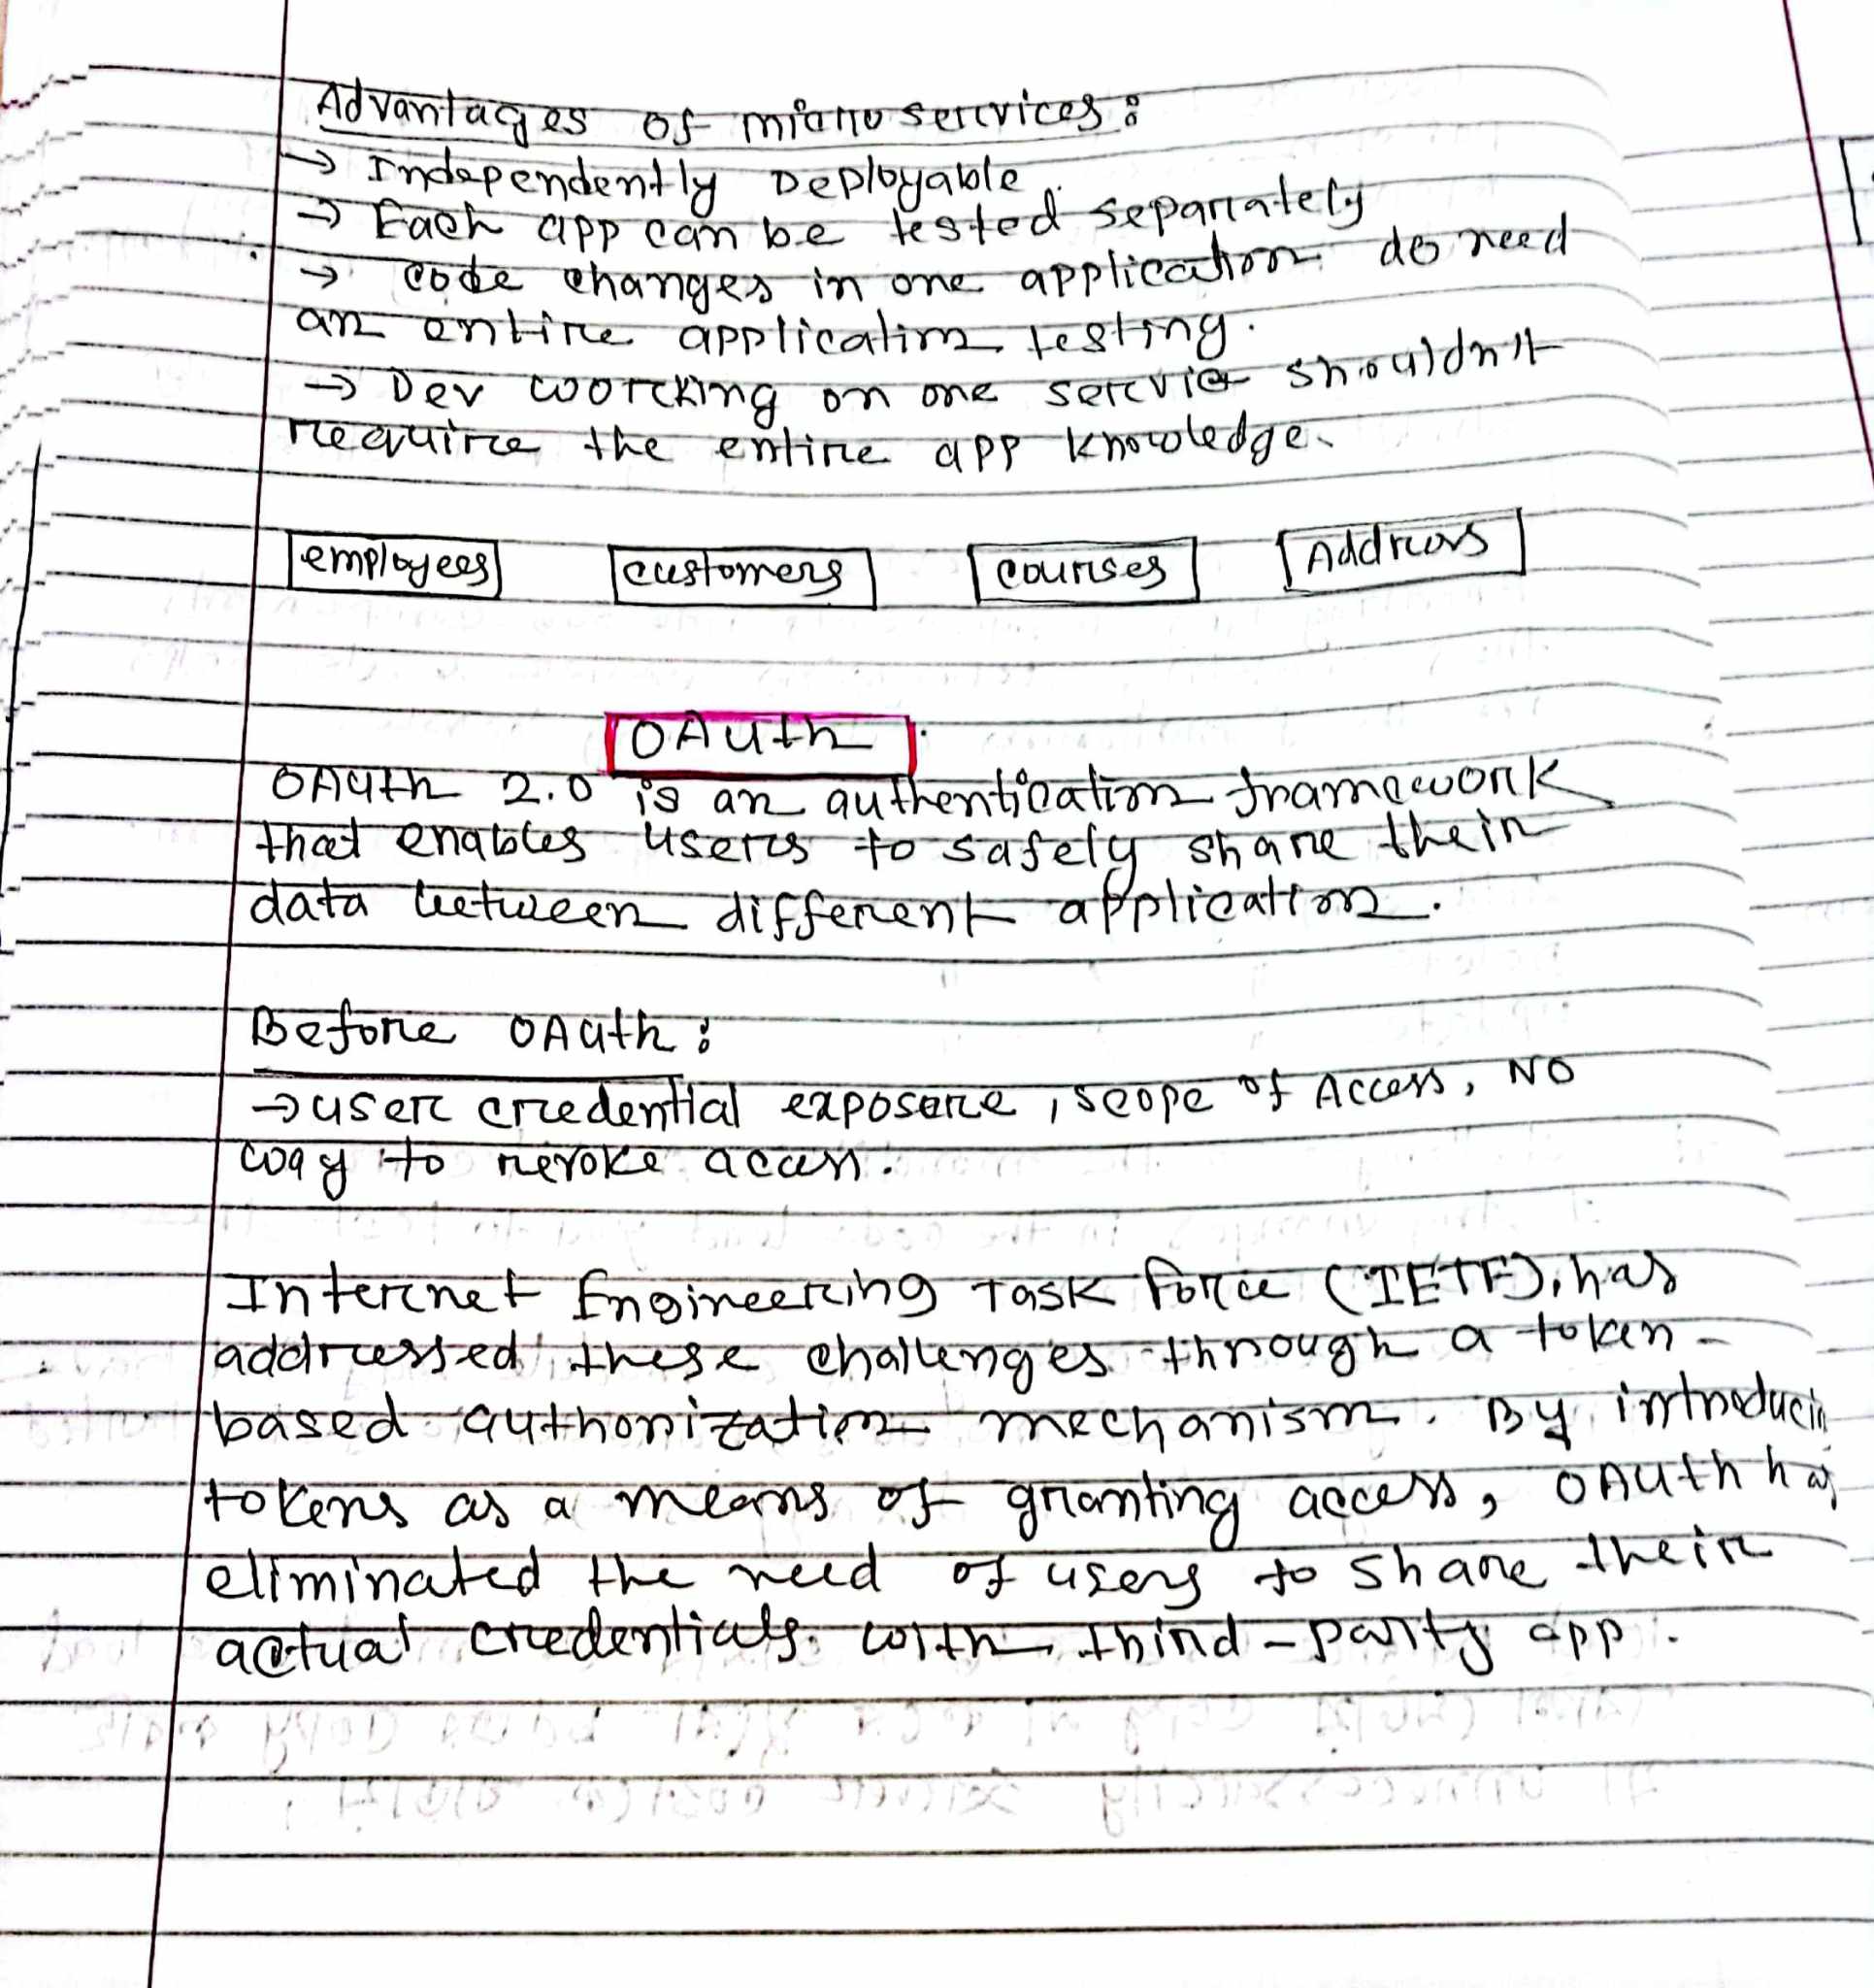 Advantages of microservices:
→ Independently Deployable.
→ Each app can be tested separately
→ code changes in one application do need
an entire application testing.
→ Dev working on one service shouldn't
require the entire app knowledge.
employees customers courses Address
OAuth
OAuth 2.0 is an authentication framework
that enables users to safely share their
data between different application.
Before OAuth:
→ user credential exposure, scope of Access, NO
way to revoke access.
Internet Engineering Task Force (IETF), has
addressed these challenges through a token-
based authorization mechanism. By introducin
tokens as a means of granting access, OAuth has
eliminated the need of users to share their
actual credentials with third-party app.